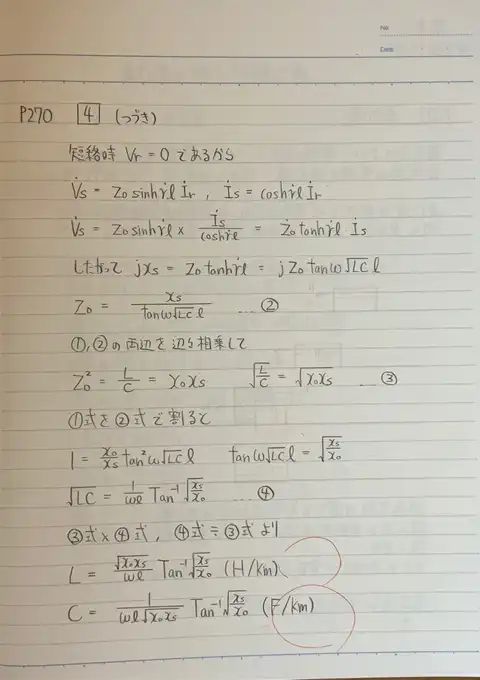 No.
Date
P270 4 (つづき)
短絡時 Vr = 0 であるから
V̇s = Z₀ sinhγ̇l İr , İs = coshγ̇l İr
V̇s = Z₀ sinhγ̇l × İs/coshγ̇l = Ż₀ tanhγ̇l İs
したがって jxs = Z₀ tanhγ̇l = j Z₀ tanω√LC l
Z₀ = xs/tanω√LC l ②
①,②の両辺を辺々相乗して
Z₀² = L/C = x₀xs √(L/C) = √x₀xs ③
①式を②式で割ると
1 = x₀/xs tan²ω√LC l tanω√LC l = √(xs/x₀)
√LC = 1/ωl Tan⁻¹√(xs/x₀) ④
③式×④式, ④式÷③式より
L = √x₀xs/ωl Tan⁻¹√(xs/x₀) (H/km)
C = 1/ωl√x₀xs Tan⁻¹√(xs/x₀) (F/km)